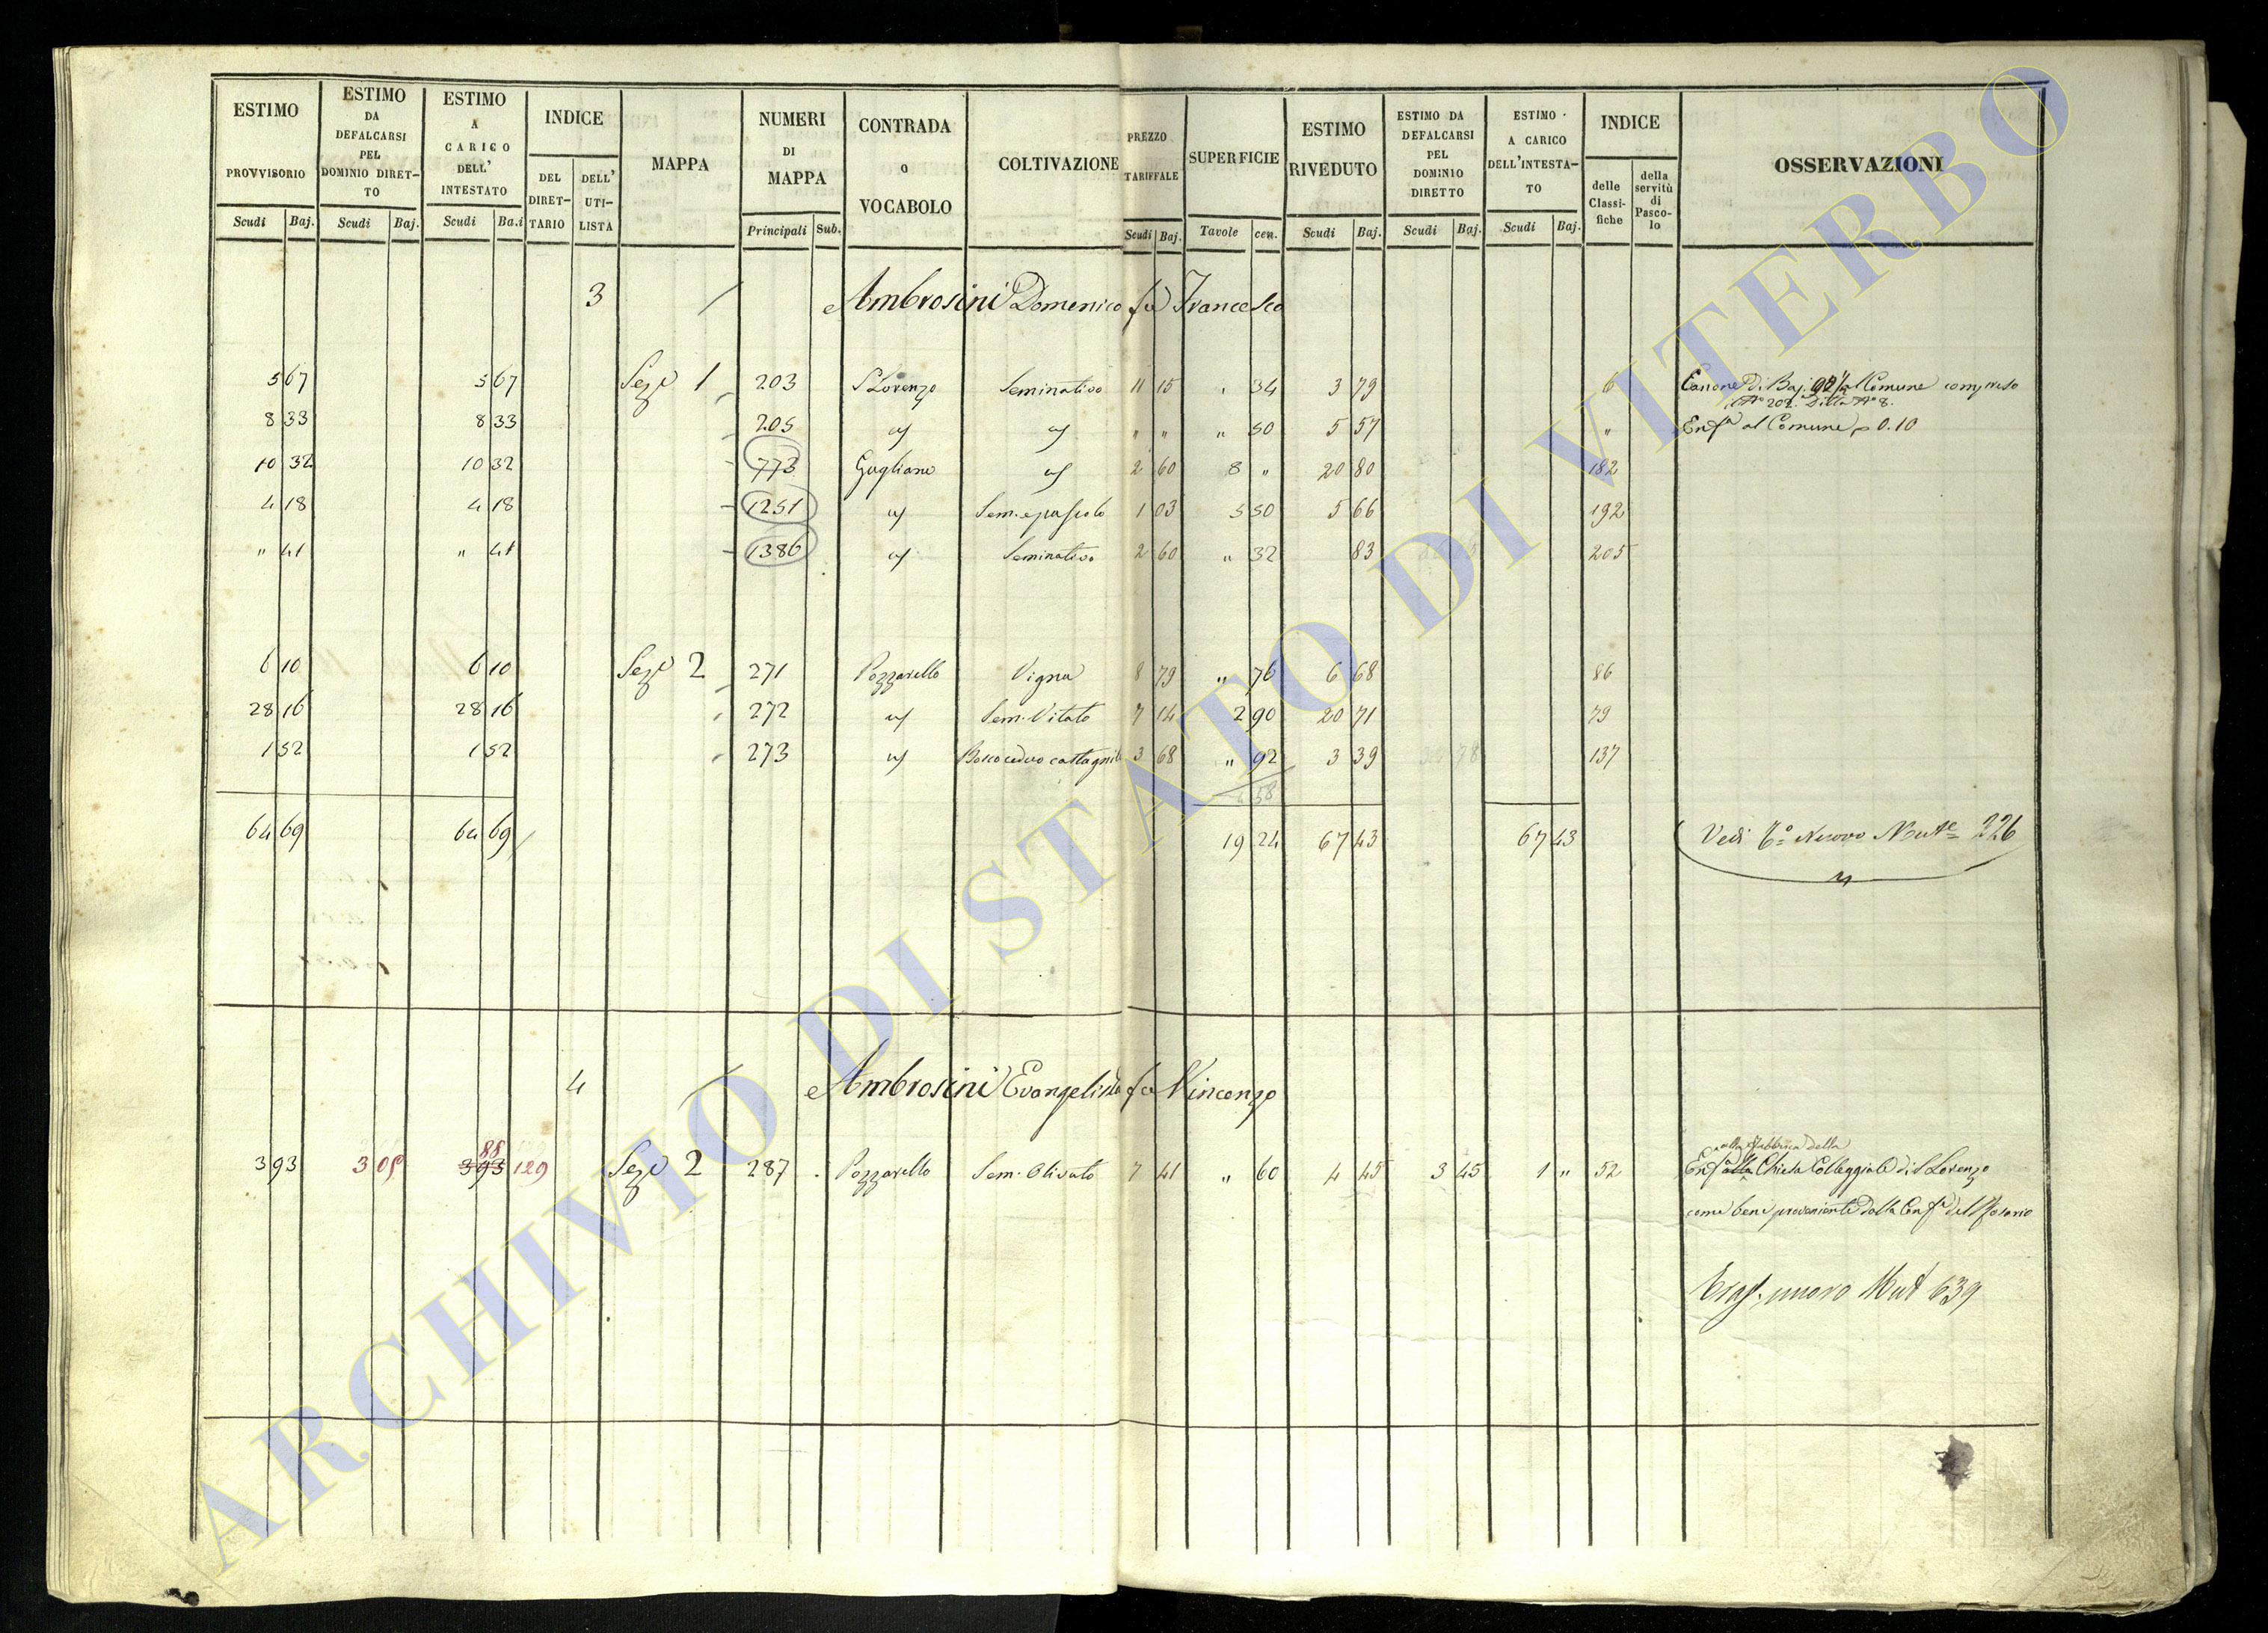 ESTIMO PROVVISORIO Scudi Baj.
ESTIMO DA DEFALCARSI PEL DOMINIO DIRETTO Scudi Baj.
ESTIMO A CARICO DELL' INTESTATO Scudi Ba.i
INDICE DEL DIRETTARIO DELL' UTILISTA
MAPPA
NUMERI DI MAPPA Principali Sub.
CONTRADA o VOCABOLO
COLTIVAZIONE
PREZZO TARIFFALE Scudi Baj.
SUPERFICIE Tavole cen.
ESTIMO RIVEDUTO Scudi Baj.
ESTIMO DA DEFALCARSI PEL DOMINIO DIRETTO Scudi Baj.
ESTIMO A CARICO DELL'INTESTATO Scudi Baj.
INDICE delle Classifiche della servitù di Pascolo
OSSERVAZIONI
3 Ambrosini Domenico fu Francesco
5 67 5 67 Sez. 1 203 S Lorenzo Seminativo 11 15 34 3 79 6 Canone di Baj. al Comune compreso
il No 202. Ditta No 8.
8 33 8 33 205 " " " 50 5 57 " Enfa al Comune 0.10
10 32 10 32 773 Gugliano 2 60 8 " 20 80 182
4 18 4 18 1251 Sem. e pascolo 1 03 5 50 5 66 192
" 41 " 41 1386 Seminativo 2 60 " 32 83 205
6 10 6 10 Sez. 2 271 Pozzarello Vigna 8 79 " 76 6 68 86
28 16 28 16 272 Sem. Vitato 7 14 2 90 20 71 79
1 52 1 52 273 Bosco ceduo castagnile 3 68 " 92 3 39 137
4 58
64 69 64 69 19 24 67 43 67 43 Vedi To Nuovo 226
4 Ambrosini Evangelista fu Vincenzo
alla Fabbrica della
88
3 93 3 05 3 93 129 Sez. 2 287 Pozzarello Sem. Olivato 7 41 " 60 4 45 3 45 1 " 52 Enfa alla Chiesa Colleggiale di S Lorenzo
come bene proveniente dalla Confa del Rosario
nuovo Mut 639
ARCHIVIO DI STATO DI VITERBO